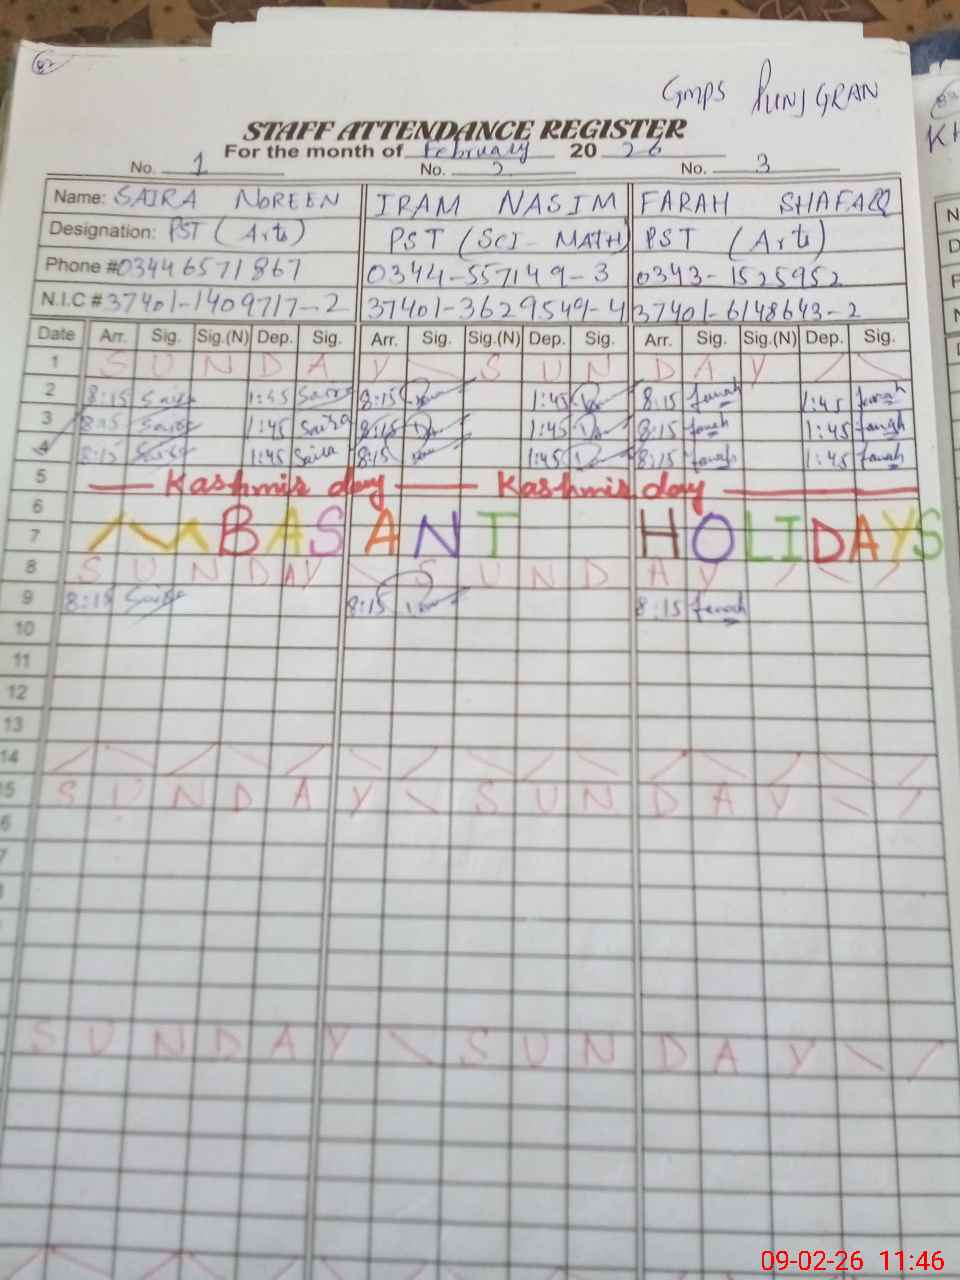 82
GMPS PUNJGRAN
STAFF ATTENDANCE REGISTER
For the month of February 2026
No. 1 No. 2 No. 3
Name: SAIRA NOREEN IRAM NASIM FARAH SHAFAQ
Designation: PST (Arts) PST (SCI-MATH) PST (Arts)
Phone #03446571867 0344-557149-3 0343-1525952
N.I.C #37401-1409717-2 37401-3629549-4 37401-6148643-2
Date Arr. Sig. Sig.(N) Dep. Sig. Arr. Sig. Sig.(N) Dep. Sig. Arr. Sig. Sig.(N) Dep. Sig.
1 SUNDAY SUNDAY
2 8:15 Saira 1:45 Saira 8:15 1:45 8:15 Farah 1:45 Farah
3 8:15 Saira 1:45 Saira 8:15 1:45 8:15 Farah 1:45 Farah
4 8:15 Saira 1:45 Saira 8:15 1:45 8:15 Farah 1:45 Farah
5 Kashmir day Kashmir day
6
7 BASANT HOLIDAYS
8 SUNDAY SUNDAY
9 8:15 Saira 8:15 8:15 Farah
10
11
12
13
14
5 SUNDAY SUNDAY
6
7
SUNDAY SUNDAY
09-02-26 11:46